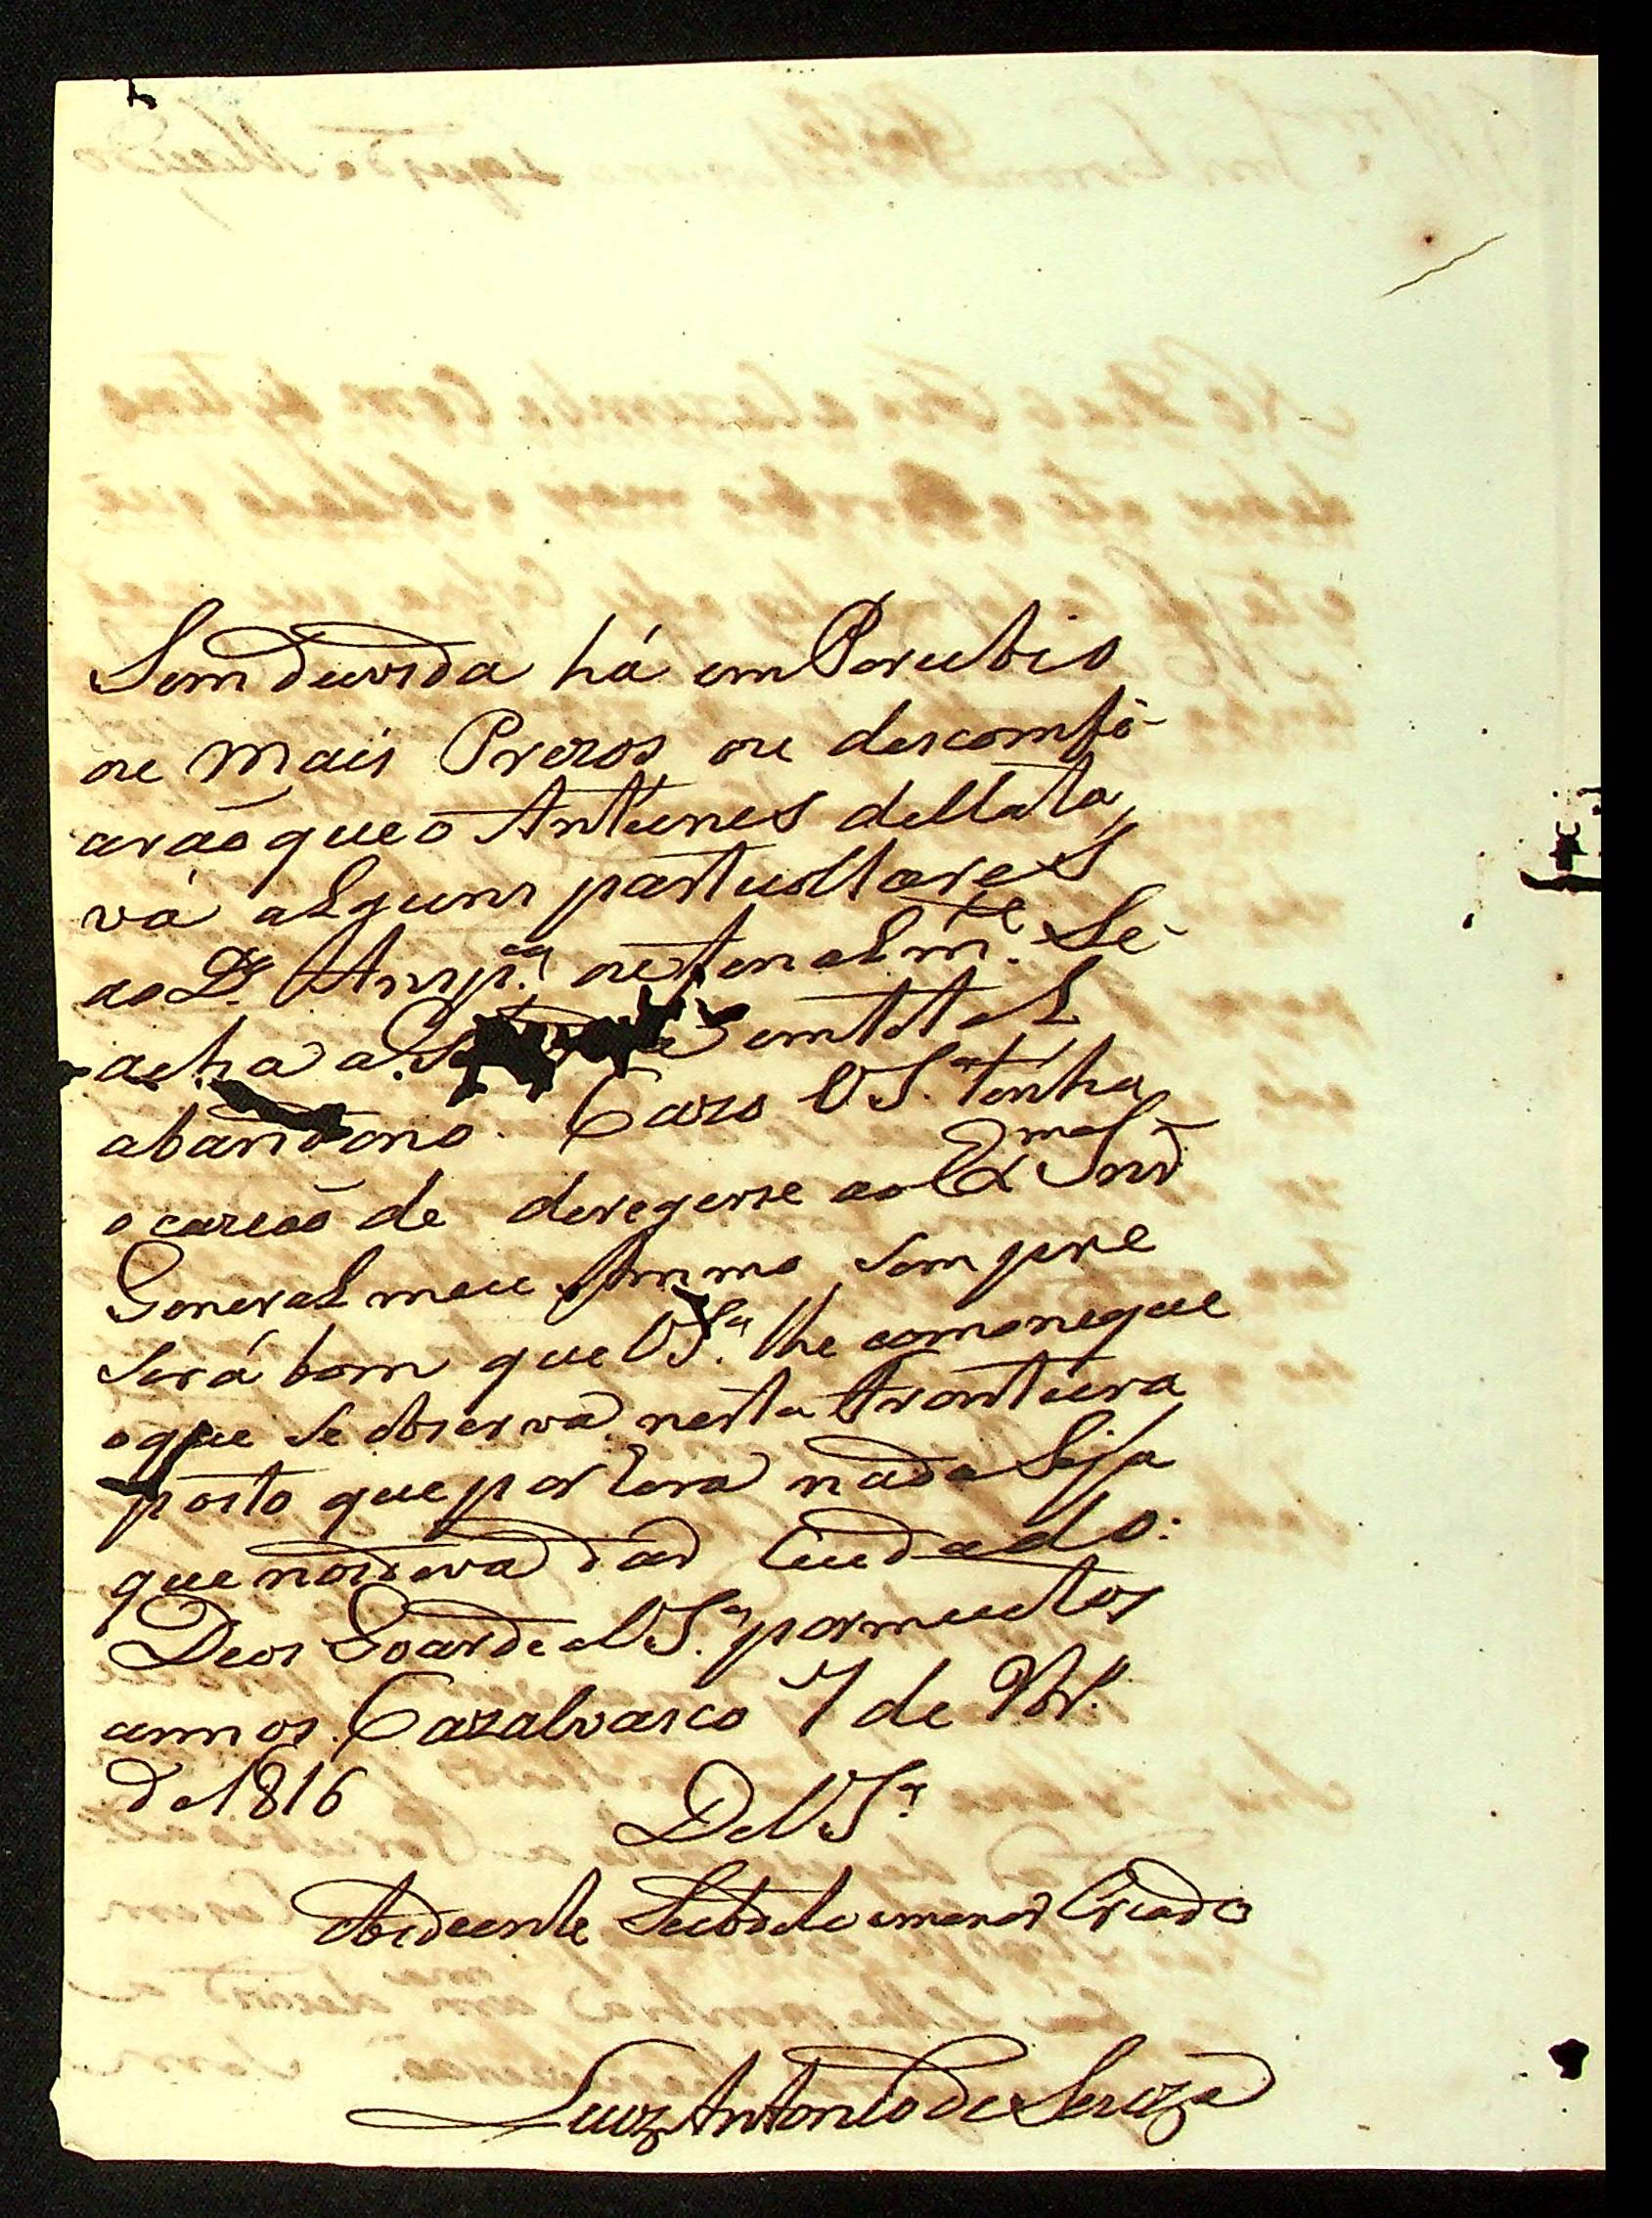 Sem duvida há em Porubio
ou mais Prezos ou descomfi-
arão que o Antunes dellata,
vá alguns partucllares
ao Dr. Anrp.ª ultemalm.te Se-
acha a em total
abandono. Cazo VS.ª tenha
ocazião de deregerse ao Ex.mo Snr
General meu Ammo, sempre
será bom que VS.ª lhe comoneque
o que se observa nesta Fronteira
posto que por hora nada Seja
que nos deva dar Cuidado.
Deos Goarde a VS.ª por muitos
annos. Cazalvasco 7 de Nbr.º
de 1816
De VS.ª
Obediente Subdeto e menor Criado
Luiz Antonio de Souza